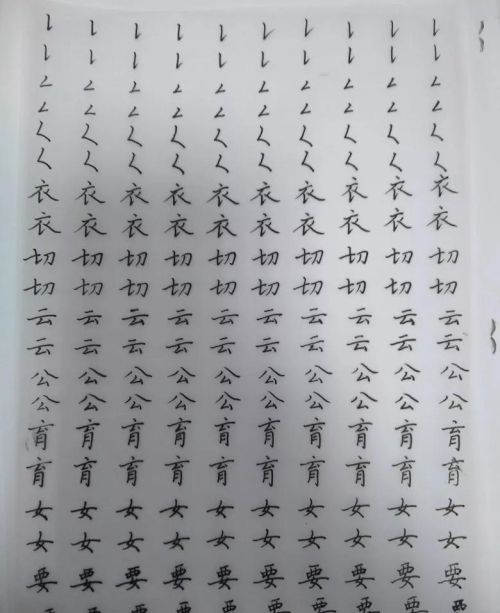 ㇙㇙㇙㇙㇙㇙㇙㇙㇙㇙
㇙㇙㇙㇙㇙㇙㇙㇙㇙㇙
㇜㇜㇜㇜㇜㇜㇜㇜㇜㇜
㇜㇜㇜㇜㇜㇜㇜㇜㇜㇜
㇛㇛㇛㇛㇛㇛㇛㇛㇛㇛
㇛㇛㇛㇛㇛㇛㇛㇛㇛㇛
衣衣衣衣衣衣衣衣衣衣
衣衣衣衣衣衣衣衣衣衣
切切切切切切切切切切
切切切切切切切切切切
云云云云云云云云云云
云云云云云云云云云云
公公公公公公公公公公
公公公公公公公公公公
育育育育育育育育育育
育育育育育育育育育育
女女女女女女女女女女
女女女女女女女女女女
要要要要要要要要要要